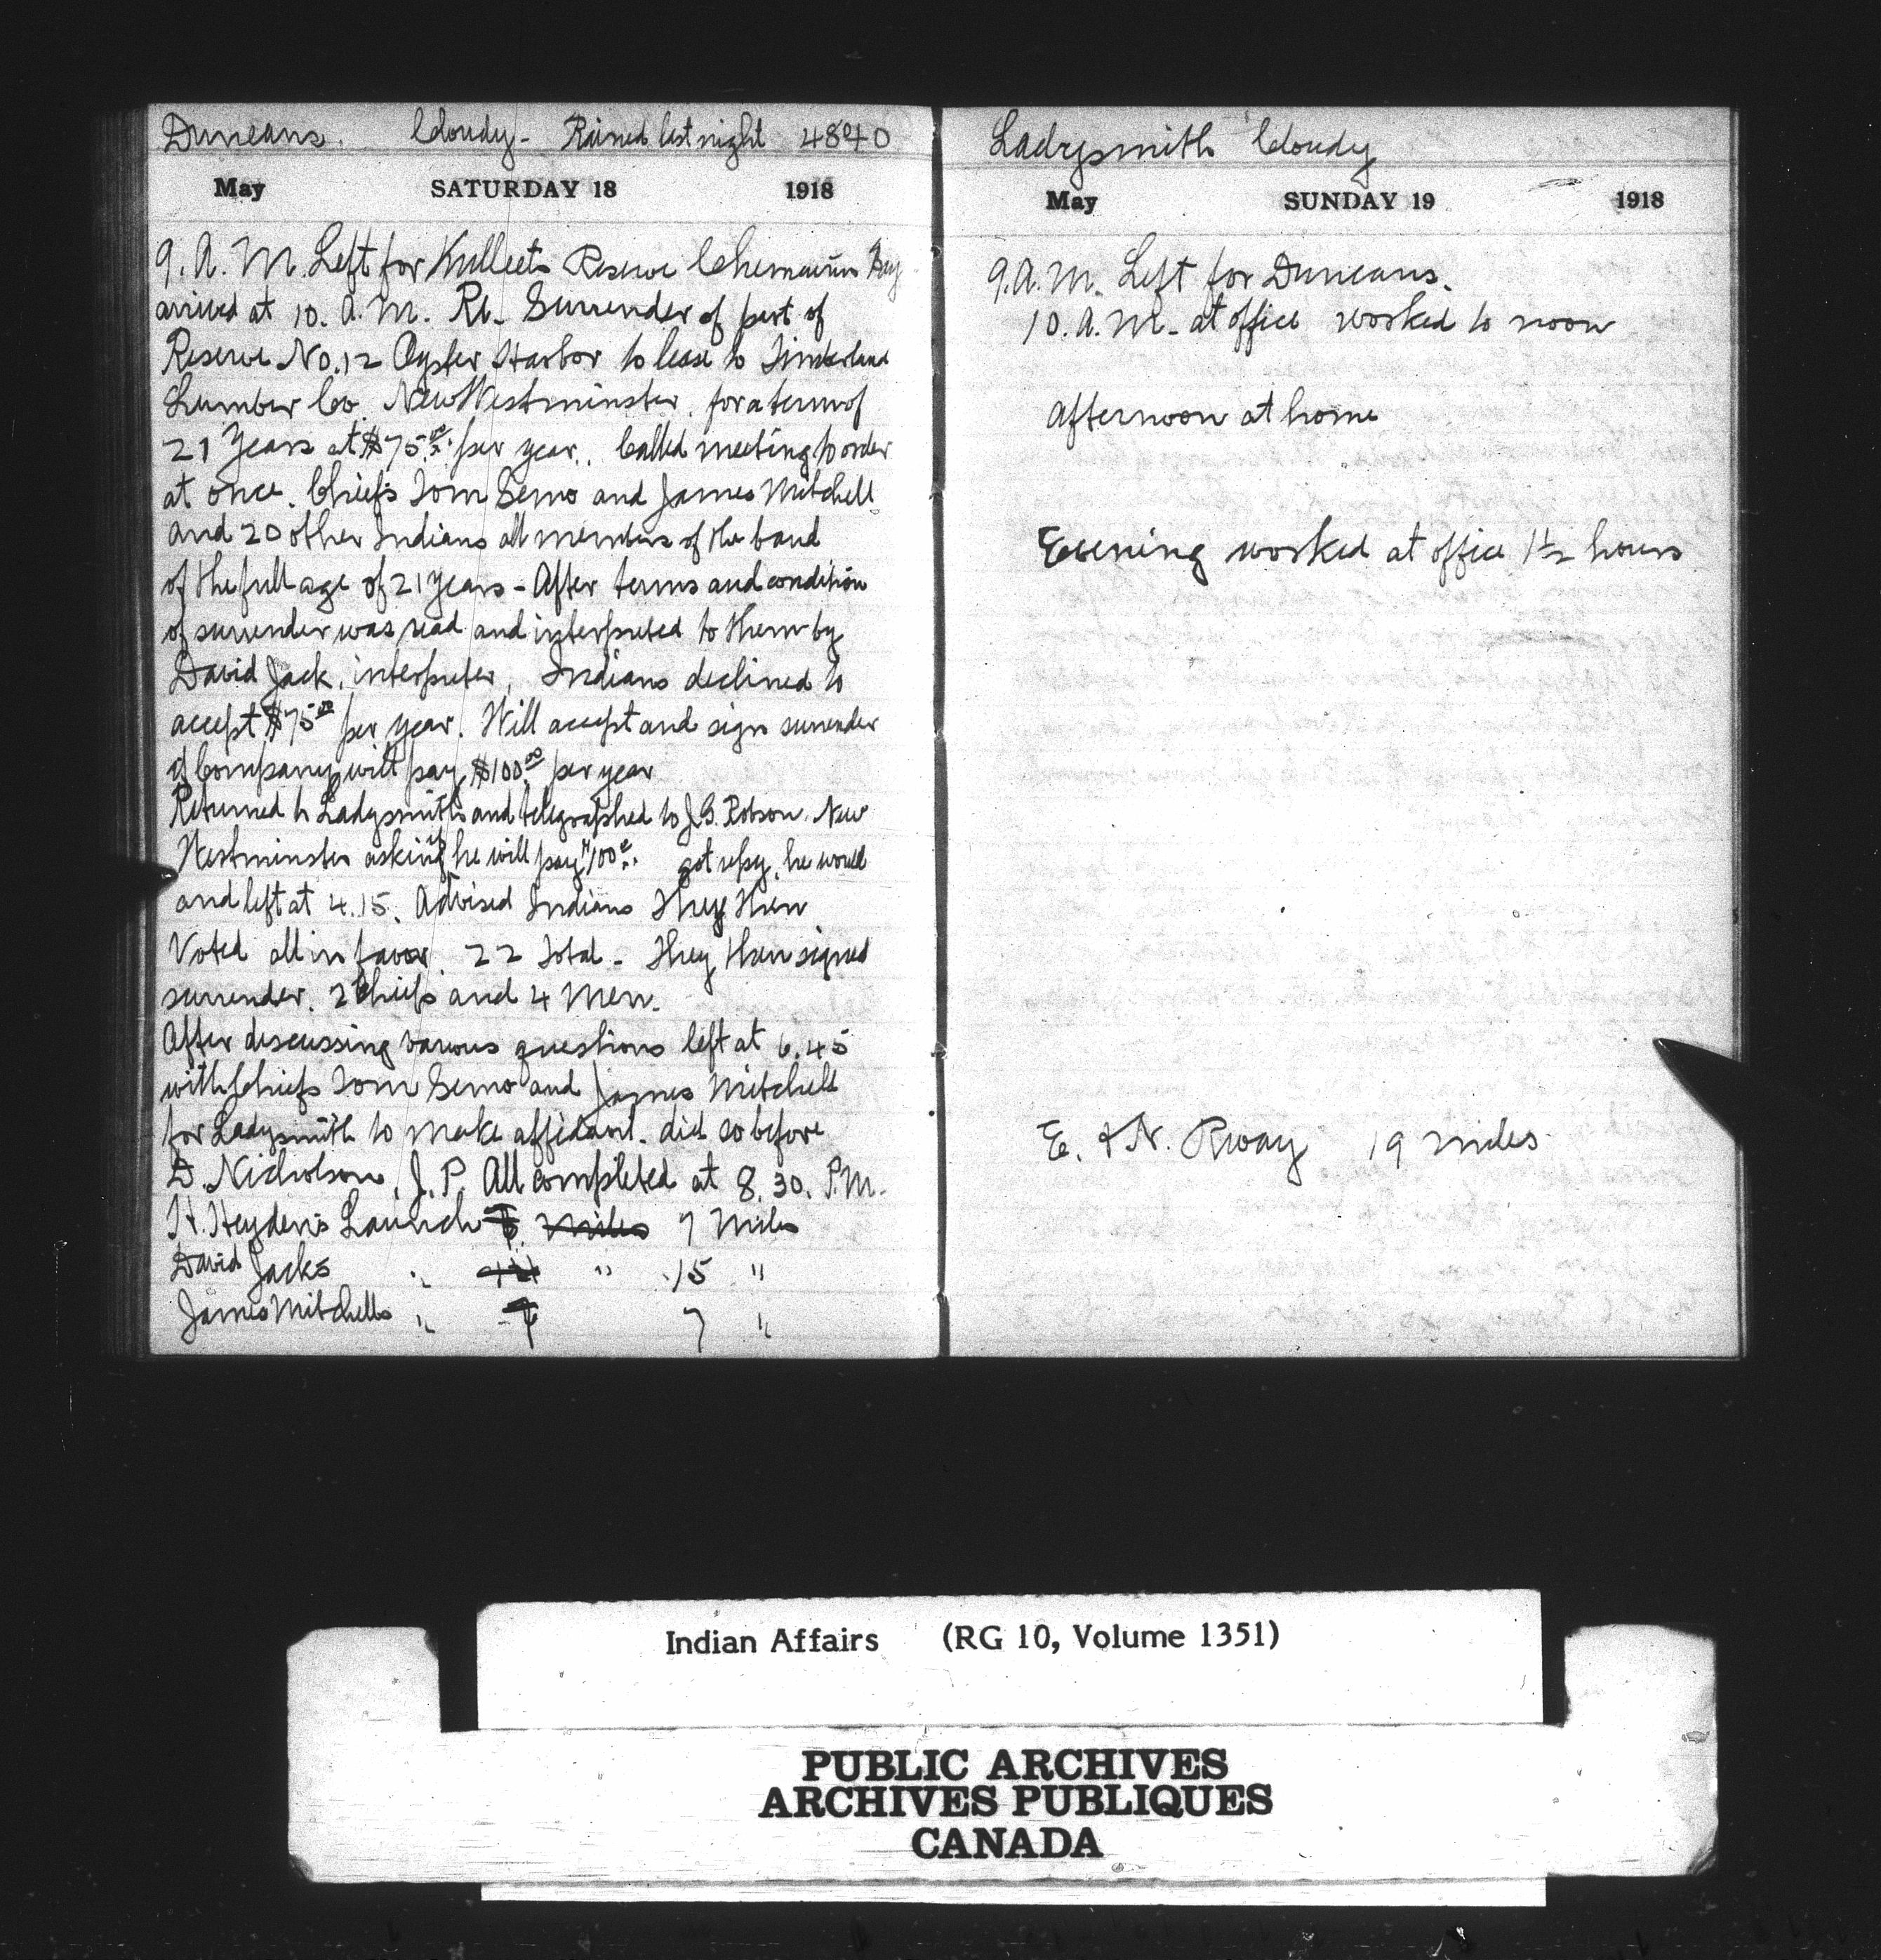 Duncans. Cloudy - Rained last night 48°40
May SATURDAY 18 1918
9. A. M. Left for Kulleets Reserve Chemainus Bay
arrived at 10. A. M. Re- Surrender of part of
Reserve No. 12 Oyster Harbor to lease to Timberland
Lumber Co. New Westminster. for a term of
21 Years at $75.00 per year.. Called meeting to order
at once. Chiefs Tom Semo and James Mitchell
and 20 other Indians all members of the band
of the full age of 21 years - After terms and condition
of surrender was read and interpreted to them by
David Jack, interpreter, Indians declined to
accept $75.00 per year. Will accept and sign surrender
if Company will pay $100.00 per year
Returned to Ladysmith and telegraphed to J.G. Robson. New
Westminster asking if he will pay $100.00. got reply, he would
and left at 4.15. Advised Indians They then
Voted all in favor. 22 Total - They then signed
surrender. 2 Chiefs and 4 Men.
After discussing various questions left at 6.45
with Chiefs Tom Semo and James Mitchell
for Ladysmith to make affidavit. did so before
D. Nicholson, J. P. All completed at 8.30. P.M.
H. Heyden's Launch 6 Miles 7 Miles
David Jacks " " 15 "
James Mitchells " 7 "
Ladysmith Cloudy
May SUNDAY 19 1918
9. A. M. Left for Duncans.
10. A. M. - at office worked to noon
Afternoon at home
Evening worked at office 1 1/2 hours
E. & N. Rway 19 miles
Indian Affairs (RG 10, Volume 1351)
PUBLIC ARCHIVES
ARCHIVES PUBLIQUES
CANADA